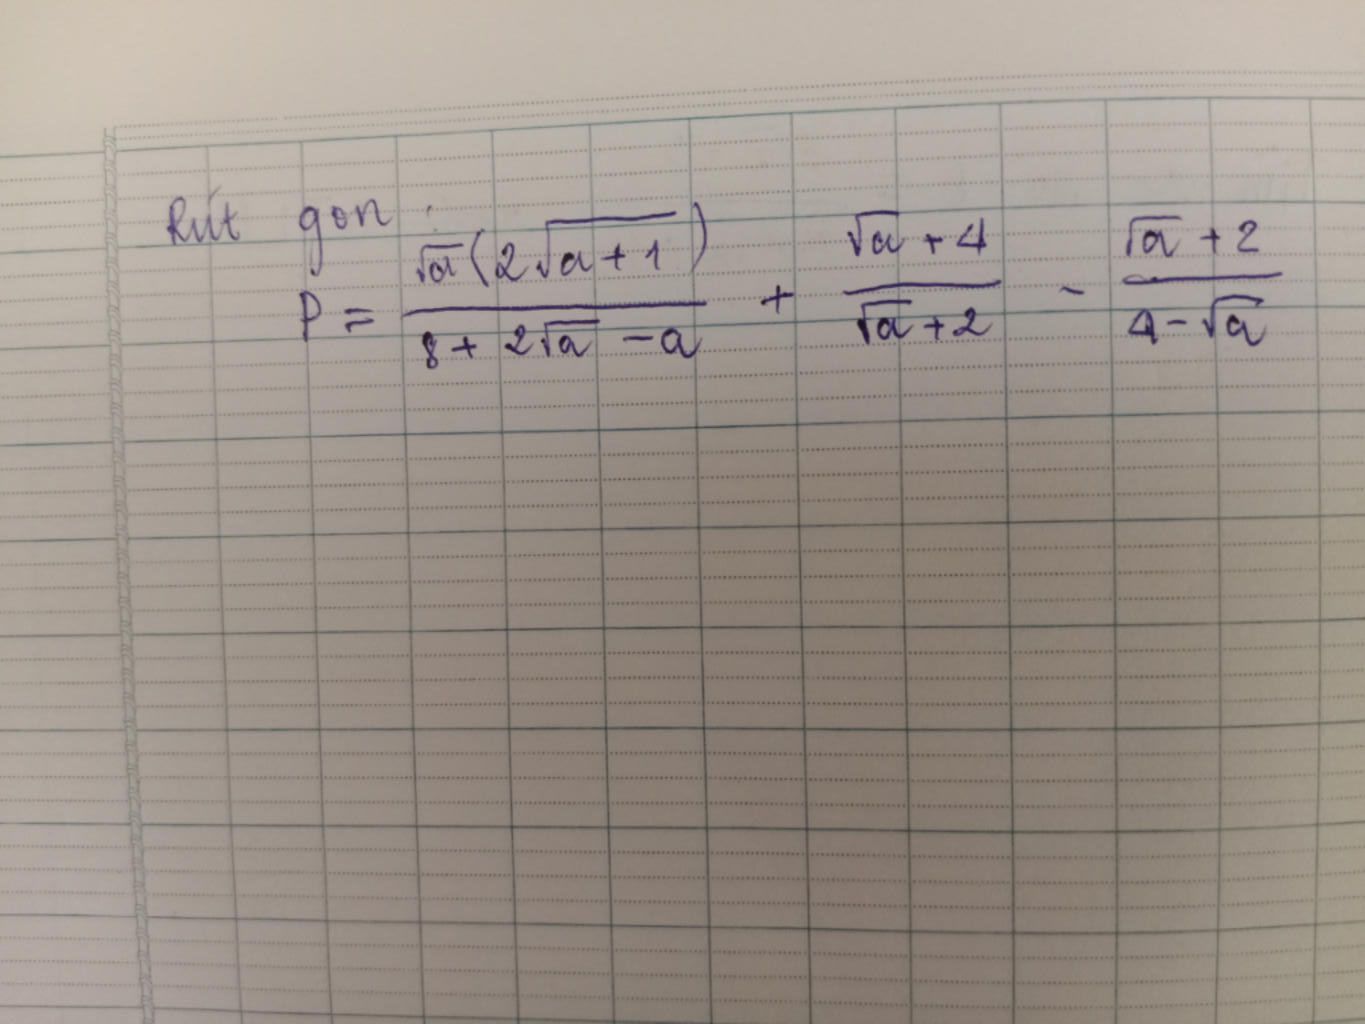 Rút gọn :
P = \frac{\sqrt{a}(2\sqrt{a+1})}{8+2\sqrt{a}-a} + \frac{\sqrt{a}+4}{\sqrt{a}+2} - \frac{\sqrt{a}+2}{4-\sqrt{a}}